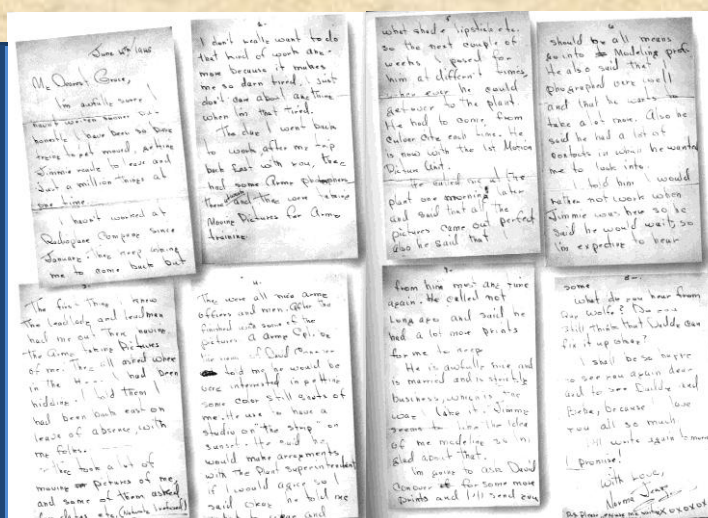 June 4th, 1945
My Dearest Grace,
I'm awfully sorry I
haven't written sooner but
honestly I have been so busy
trying to get moved, getting
Jimmie ready to leave and
Just a million things at
one time.
I haven't worked at
Radioplane Company since
January. They keep asking
me to come back but
2-
I don't really want to do
that kind of work any-
more because it makes
me so darn tired. I just
don't care about anything
when I'm that tired.
The day I went back
to work after my trip
back East with you, they
had some Army photographers
there and they were taking
Moving Pictures for Army
training.
3-
The first thing I knew
the leadlady and leadman
had me out there having
the Army taking Pictures
of me. They all asked where
in the H--- I had been
hiding. I told them I
had been back east on
leave of absence, with
my folks.
They took a lot of
moving pictures of me,
and some of them asked
for dates etc. (Naturally I refused)
4.
They were all nice army
officers and men. After they
finished with some of the
pictures a army Cpl. by
the name of David Conover
told me he would be
interested in getting
some color still shots of
me. He use to have a
studio on "the strip" on
sunset. He said he
would make arrangements
with the Plant Superintendent
if I would agree so I
said okay. he told me
what to wear and
5
what shade lipstick etc.
so the next couple of
weeks I posed for
him at different times,
when ever he could
get over to the plant.
He had to come from
Culver City each time. He
is now with the 1st Motion
Picture Unit.
He called me at the
plant one morning later
and said that all the
pictures came out perfect
also he said that
6
should by all means
go into to Modeling prof.
He also said that I
photographed very well
and that he wants to
take a lot more. Also he
said he had a lot of
contacts in which he wanted
me to look into.
I told him I would
rather not work when
Jimmie was here so he
said he would wait, so
I'm expecting to hear
7-
from him most any time
again. He called not
long ago and said he
had a lot more prints
for me to keep
He is awfully nice and
is married and is strictly
business, which is the
way I like it. Jimmie
seems to like the idea
of me modeling so I'm
glad about that.
I'm going to ask David
Conover for some more
prints and I'll send you
8-
some.
What do you hear from
Do you
still think that Cudda can
fix it up okay?
I shall be so happy
to see you again dear
and to see Cudda and
Bebe, because I love
you all so much
I'll write again tomorrow
I promise!
With Love,
Norma Jeane
P.S. Please excuse my writing XOXOXOX